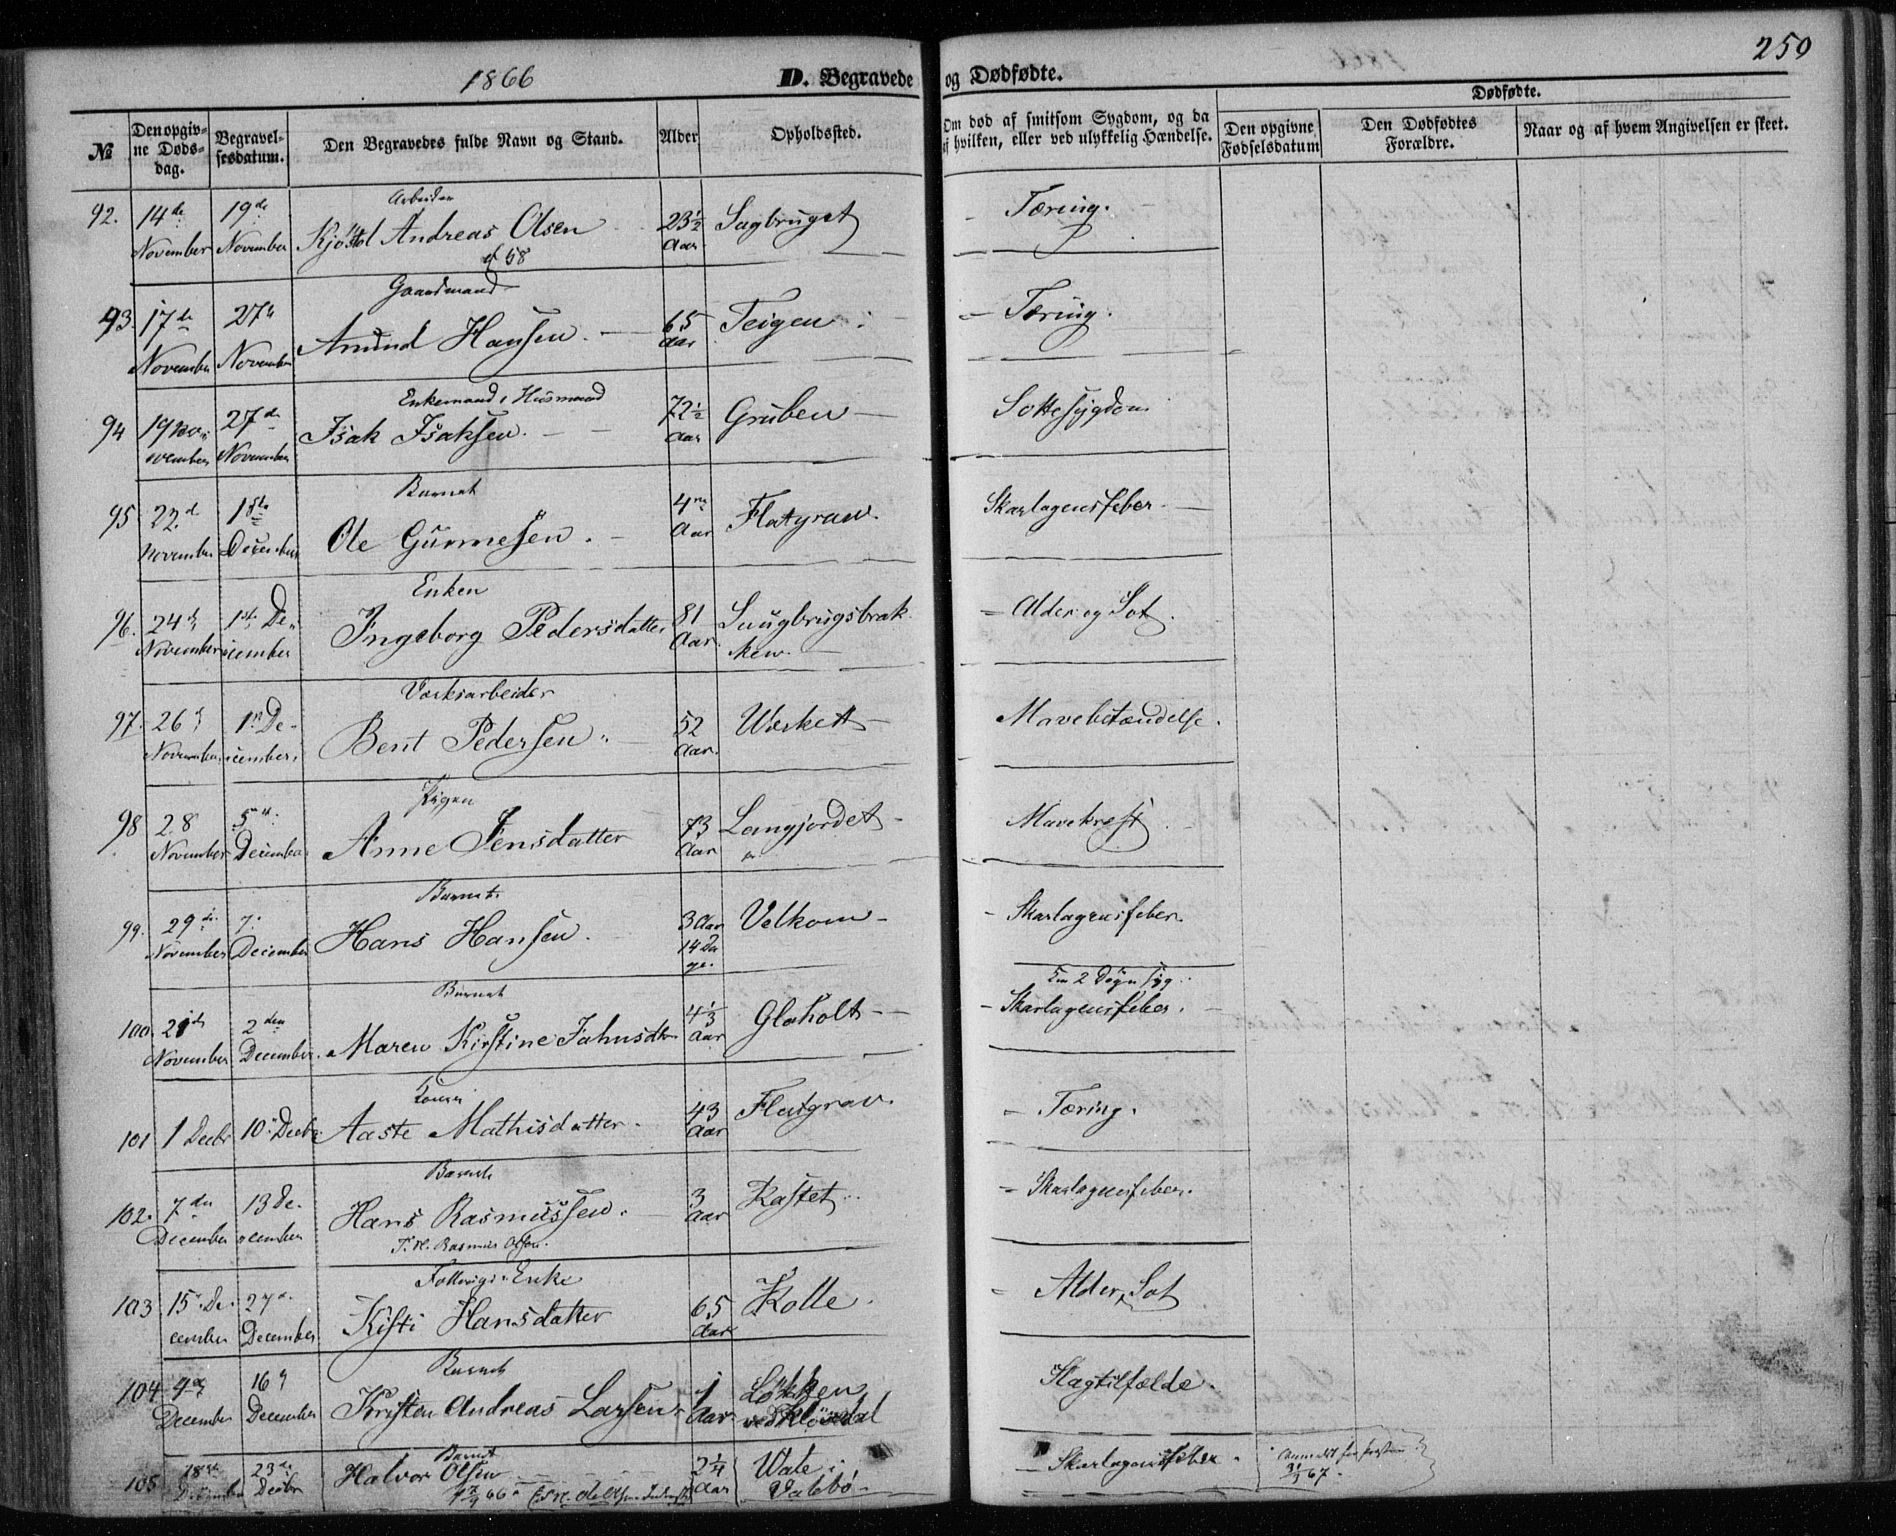 1866
D. Begravede og Dødfødte.
250
№
Den opgivne Døds-dag.
Begravelsesdatum.
Den Begravedes fulde Navn og Stand.
Alder
Opholdssted.
Om død af smitsom Sygdom, og da af hvilken, eller ved ulykkelig Hændelse.
Dødfødte.
Den opgivne Fødselsdatum
Den Dødfødtes Forældre.
Naar og af hvem Angivelsen er skeet.
92. 14de November 19de November Arbeider Andreas Olsen 23½ Aar Sagbruget Tæring.
93. 17de November 27 November Gaardmand Amund Hansen 65 Aar Teigen Tæring.
94 19 November 27de November Enkemand, Husmand Isak Isaksen 72½ Aar Gruben Sottesygdom
95 22d November 1ste December Barnet Ole Gunnesen 4 Aar Flatgrav Skarlagensfeber
96. 24d November 1ste December Enken Ingeborg Pedersdatter 81 Aar Alder og Sot
97. 26 November 1 December Værksarbeider Bent Pedersen 52 Aar Værket Mavebetændelse
98 28 November 5 December Pigen Anne Jensdatter 73 Aar Langjordet Mavekræft
99. 29de November 7 December Barnet Hans Hansen 3 Aar 14 Dage Velkom Skarlagensfeber
100 December Barnet Maren Kirstine 4⅓ Aar Glaholt 2 Døgn syg Skarlagensfeber
101 1 Decbr 10 Decbr Konen Aaste Mathisdatter 43 Aar Flatgrav Tæring
102. 7de December 13 December Barnet Hans Rasmussen 3 Aar Kastet Skarlagensfeber
Rasmus Olsen
103 15 December 27 December Enke Kisti Hansdatter 65 Aar Kolle Alder, Sot
104 9de December 16 December Barnet Kristen Andreas Larsen 1 Aar Løkken Slagtilfælde
105 18de December 23de Decbr Barnet Halvor Olsen 2¼ Aar Skarlagensfeber
67